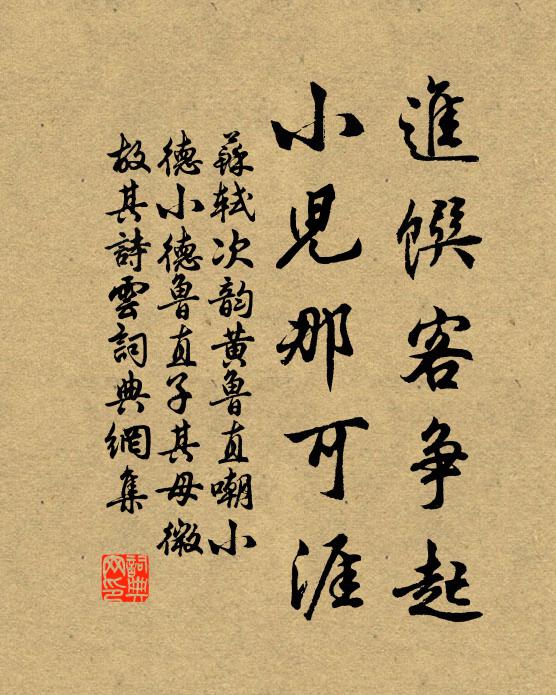 進饌客争起
小兒那可涯
蘇軾次韵黄魯直嘲小
德小德魯直子其母微
故其詩雲詞典網集
詞典
网印